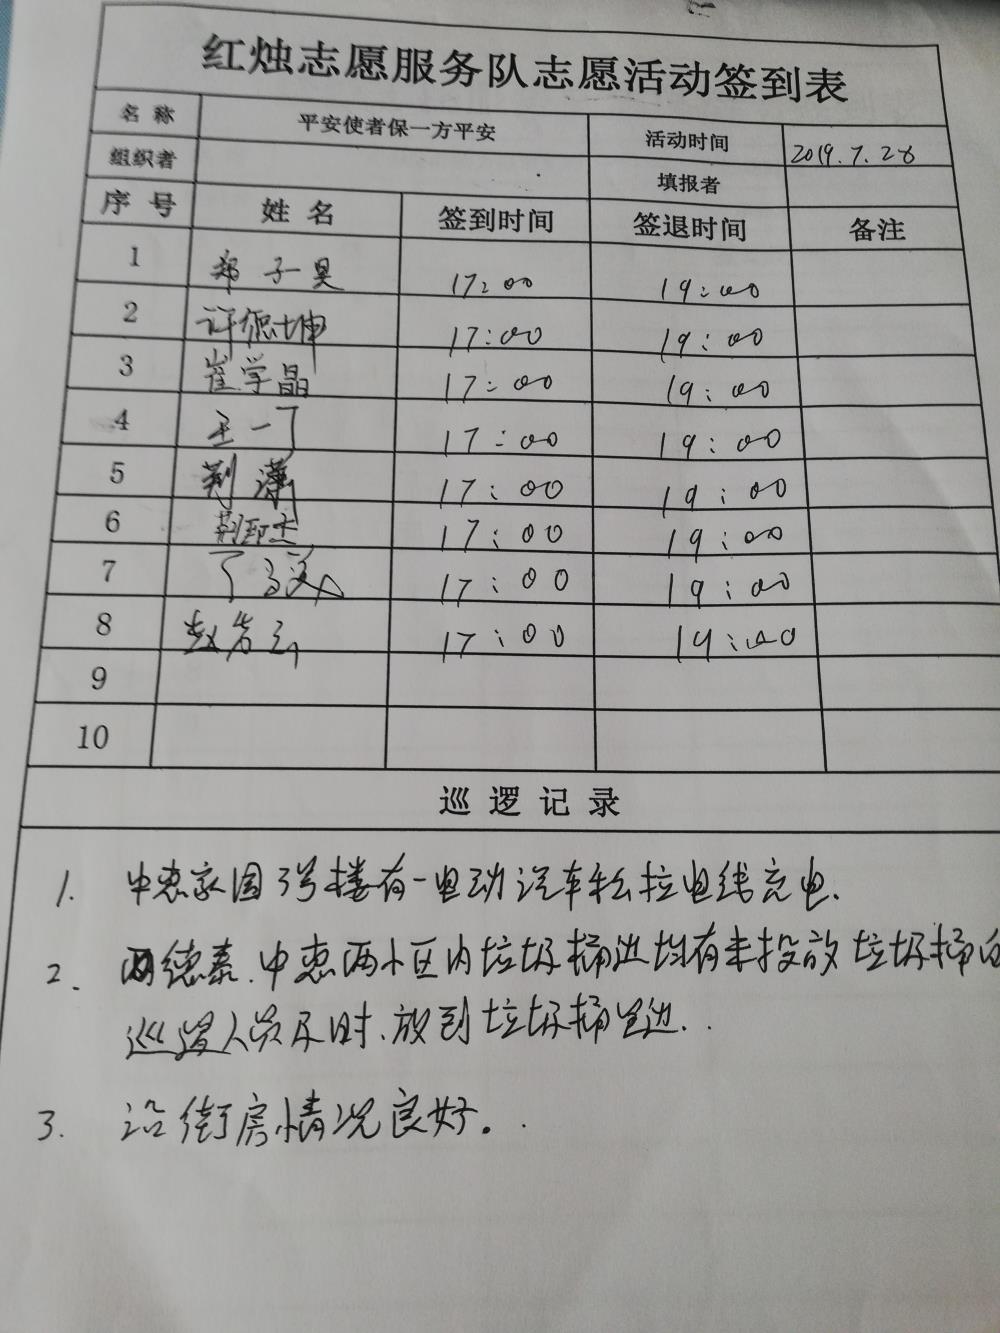 红烛志愿服务队志愿活动签到表
名称 平安使者保一方平安 活动时间 2019.7.28
组织者 填报者
序号 姓名 签到时间 签退时间 备注
1 郑子昊 17:00 19:00
2 许 坤 17:00 19:00
3 崔学晶 17:00 19:00
4 王一丁 17:00 19:00
5 荆潇 17:00 19:00
6 荆 17:00 19:00
7 丁 17:00 19:00
8 赵 17:00 19:00
9
10
巡逻记录
1. 中惠家园3号楼有一电动汽车私拉电线充电.
2. 德泰.中惠两小区内垃圾桶边均有未投放垃圾桶的
巡逻人员及时.放到垃圾桶里边..
3. 沿街房情况良好。.